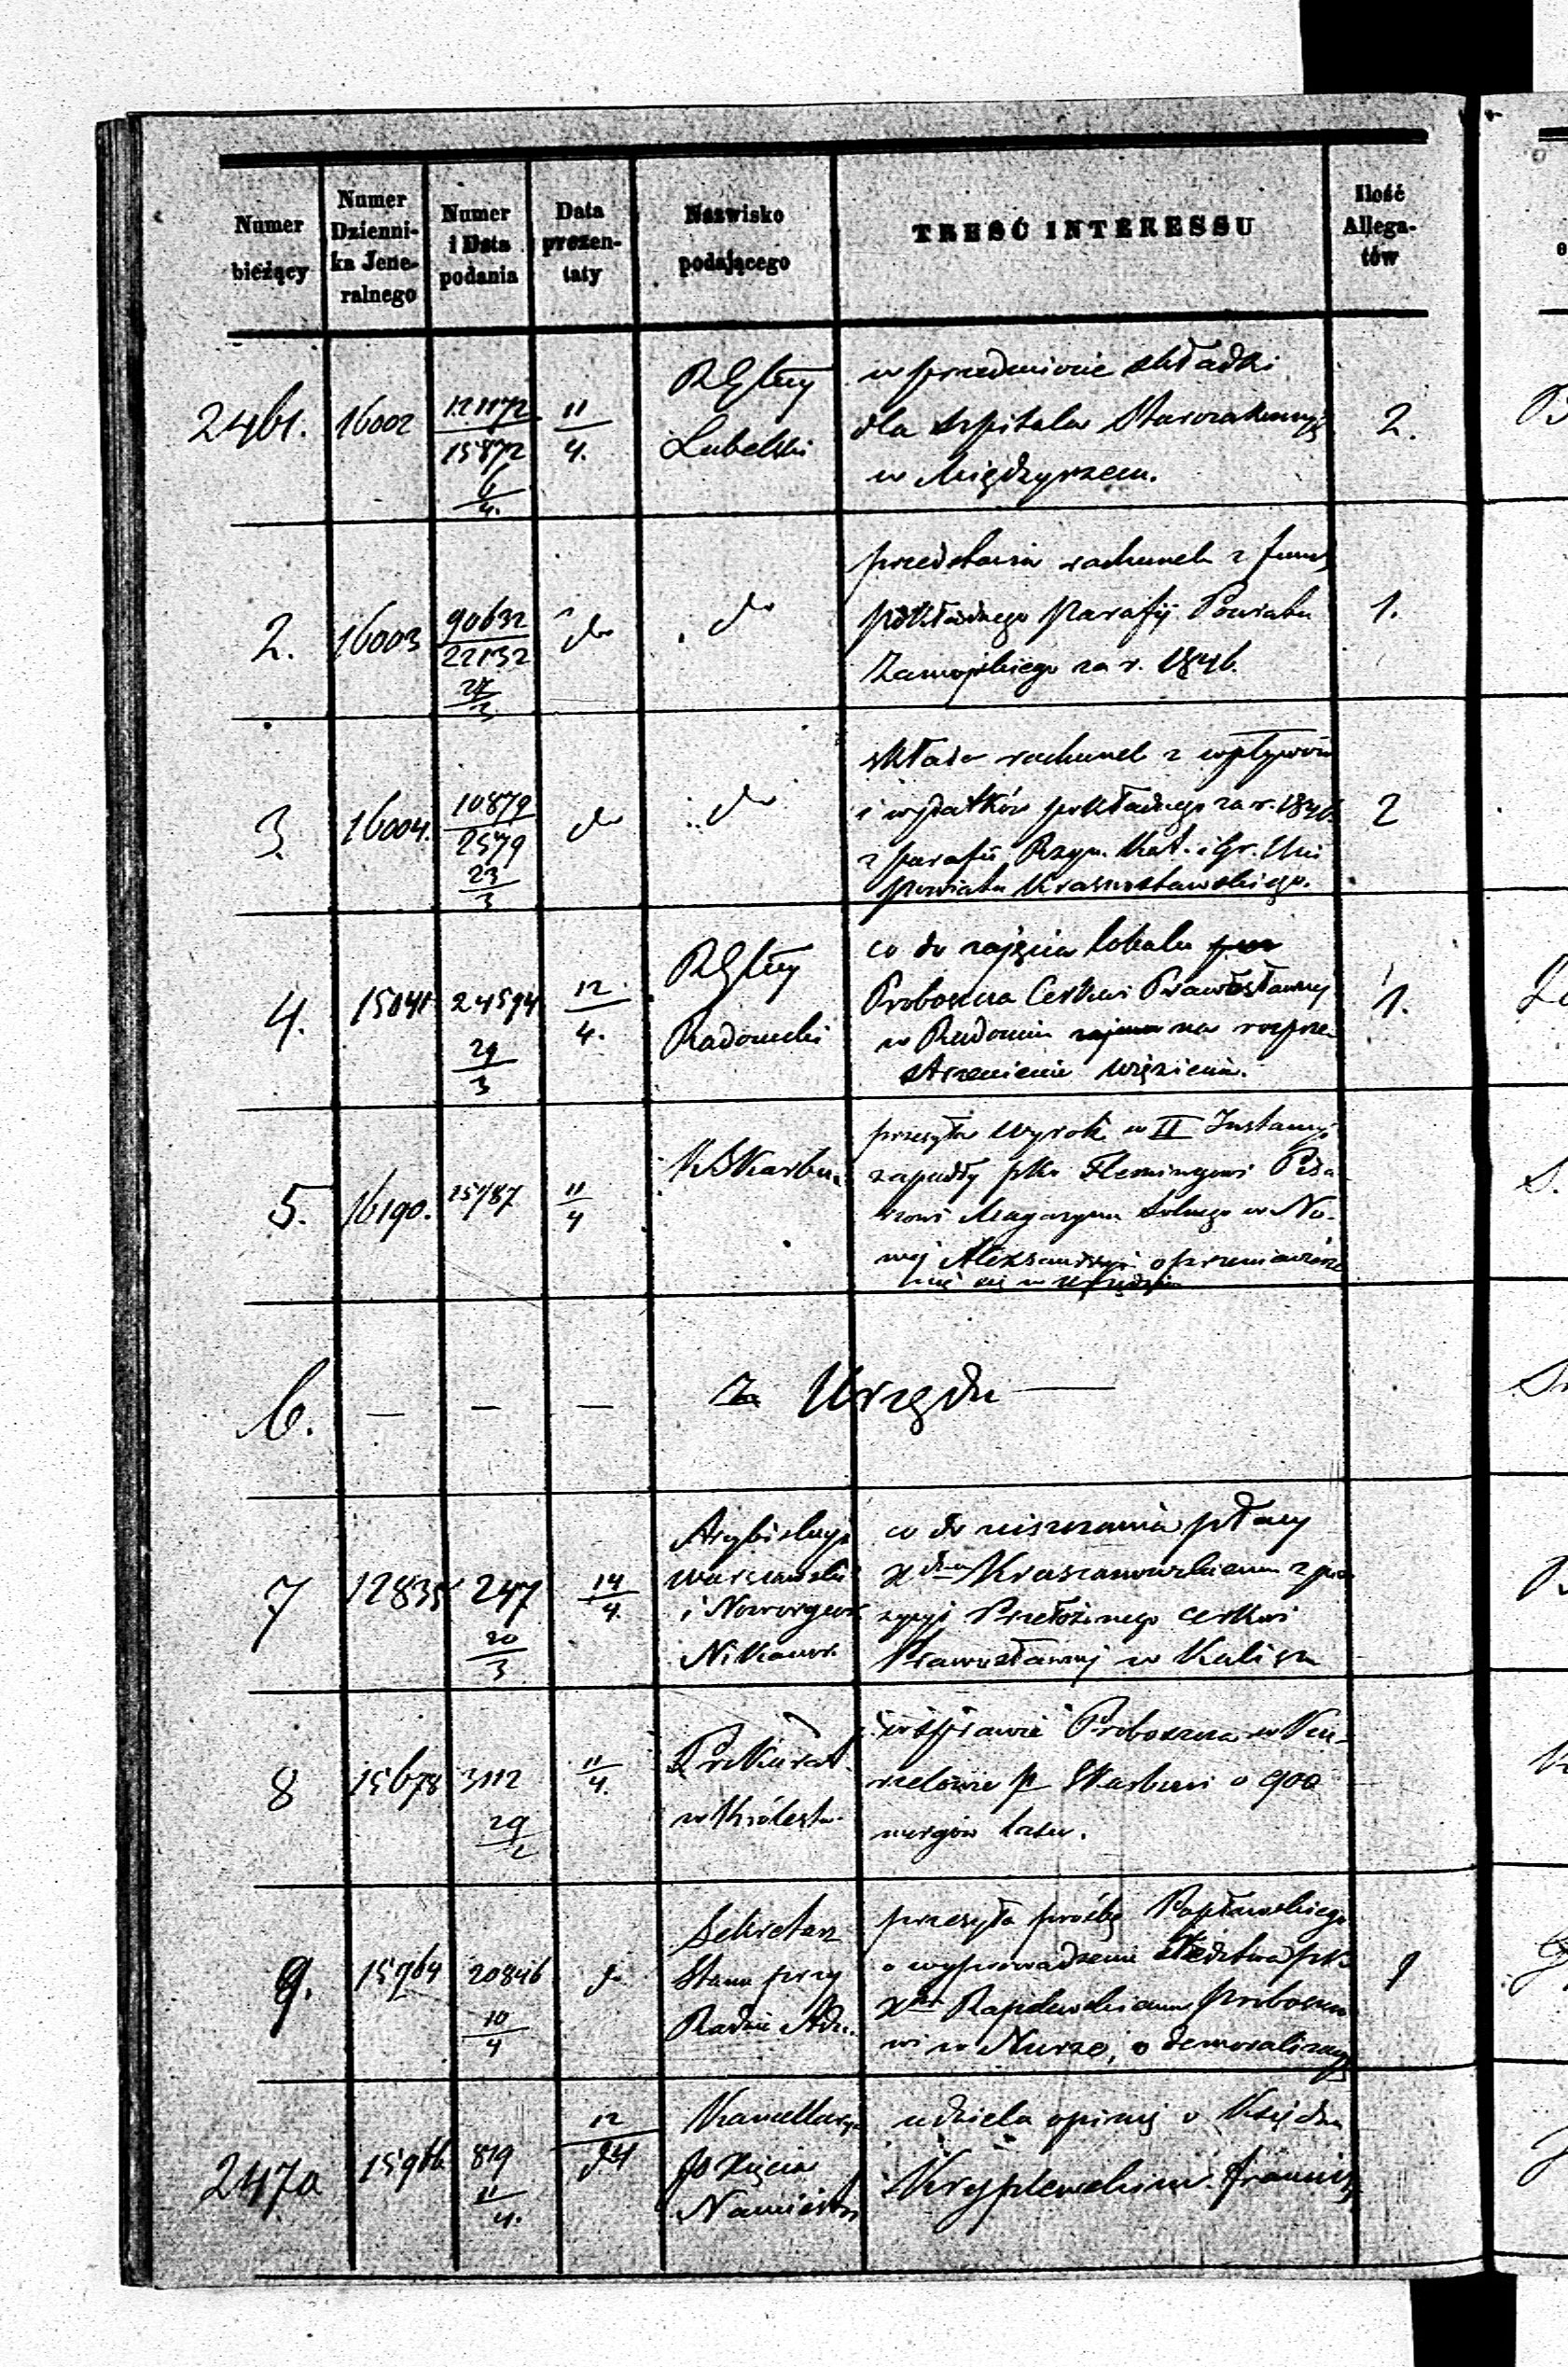 Numer
bieżący
Numer
Dzienni-
ka Jene-
ralnego
Numer
i Data
podania
Data
prezen-
taty
Nazwisko
podającego
TREŚĆ INTERESSU
Ilość
Allega-
tów
2461.
16002
121172
15872
6
4.
11
4.
Lubelski
w przedmiocie składki
dla szpitala
w Międzyrzecu.
2.
2.
16003
90632
22132
3
do
do
przedstawia rachunek z
pokładnego parafij Powiatu
Zamojskiego za r. 1846.
1.
3.
16004.
10879
2579
23
3
do
do
składa rachunek z wpływów
i wydatków pokładnego za r. 1846.
z parafii Rzym. Kat. i Gr. Uni
powiatu Krasnostawskiego.
2
4.
15841
24594
29
3
12
4.
Radomski
co do zajęcia lokalu
Proboszcza Cerkwi Prawosławnej
w Radomiu na rozprze-
strzenienie więzienia.
1.
5.
16190.
25187
11
4
K. Skarbu
przesyła wyrok w II Instancyi
zapadły pko Flemingowi Pisa
rzowi Magazynu Solnego w No-
wej Aleksandryi o przeniewierze
nie się w urzędzie
6.
—
—
—
z Urzędu —
7
12835
247
20
3
14
4.
Arcybiskup
Warszawski
i Nowogeor
Nikanor
co do uiszczania płacy
Xdzu Kraszanowskiemu z
Przełożonego cerkwi
Prawosławnej w Kaliszu
8
15678
3112
29
11
4.
Prokurat.
w Królest.
w sprawie Proboszcza w Ku-
rzelowie p Skarbowi o 900
morgów lasu.
9.
15964
20846
10
4
do
Sekretarz
Stanu przy
Radzie Adm.
przesyła prośbę Popławskiego
o wyprowadzenie śledztwa pko
Xdzu proboszczo
wi w Nurze, o demoralizacyę
1
2470
15966
819
11
4.
12
4
Kancellarya
Xięcia
Namiestn
udziela opinij o Księdzu